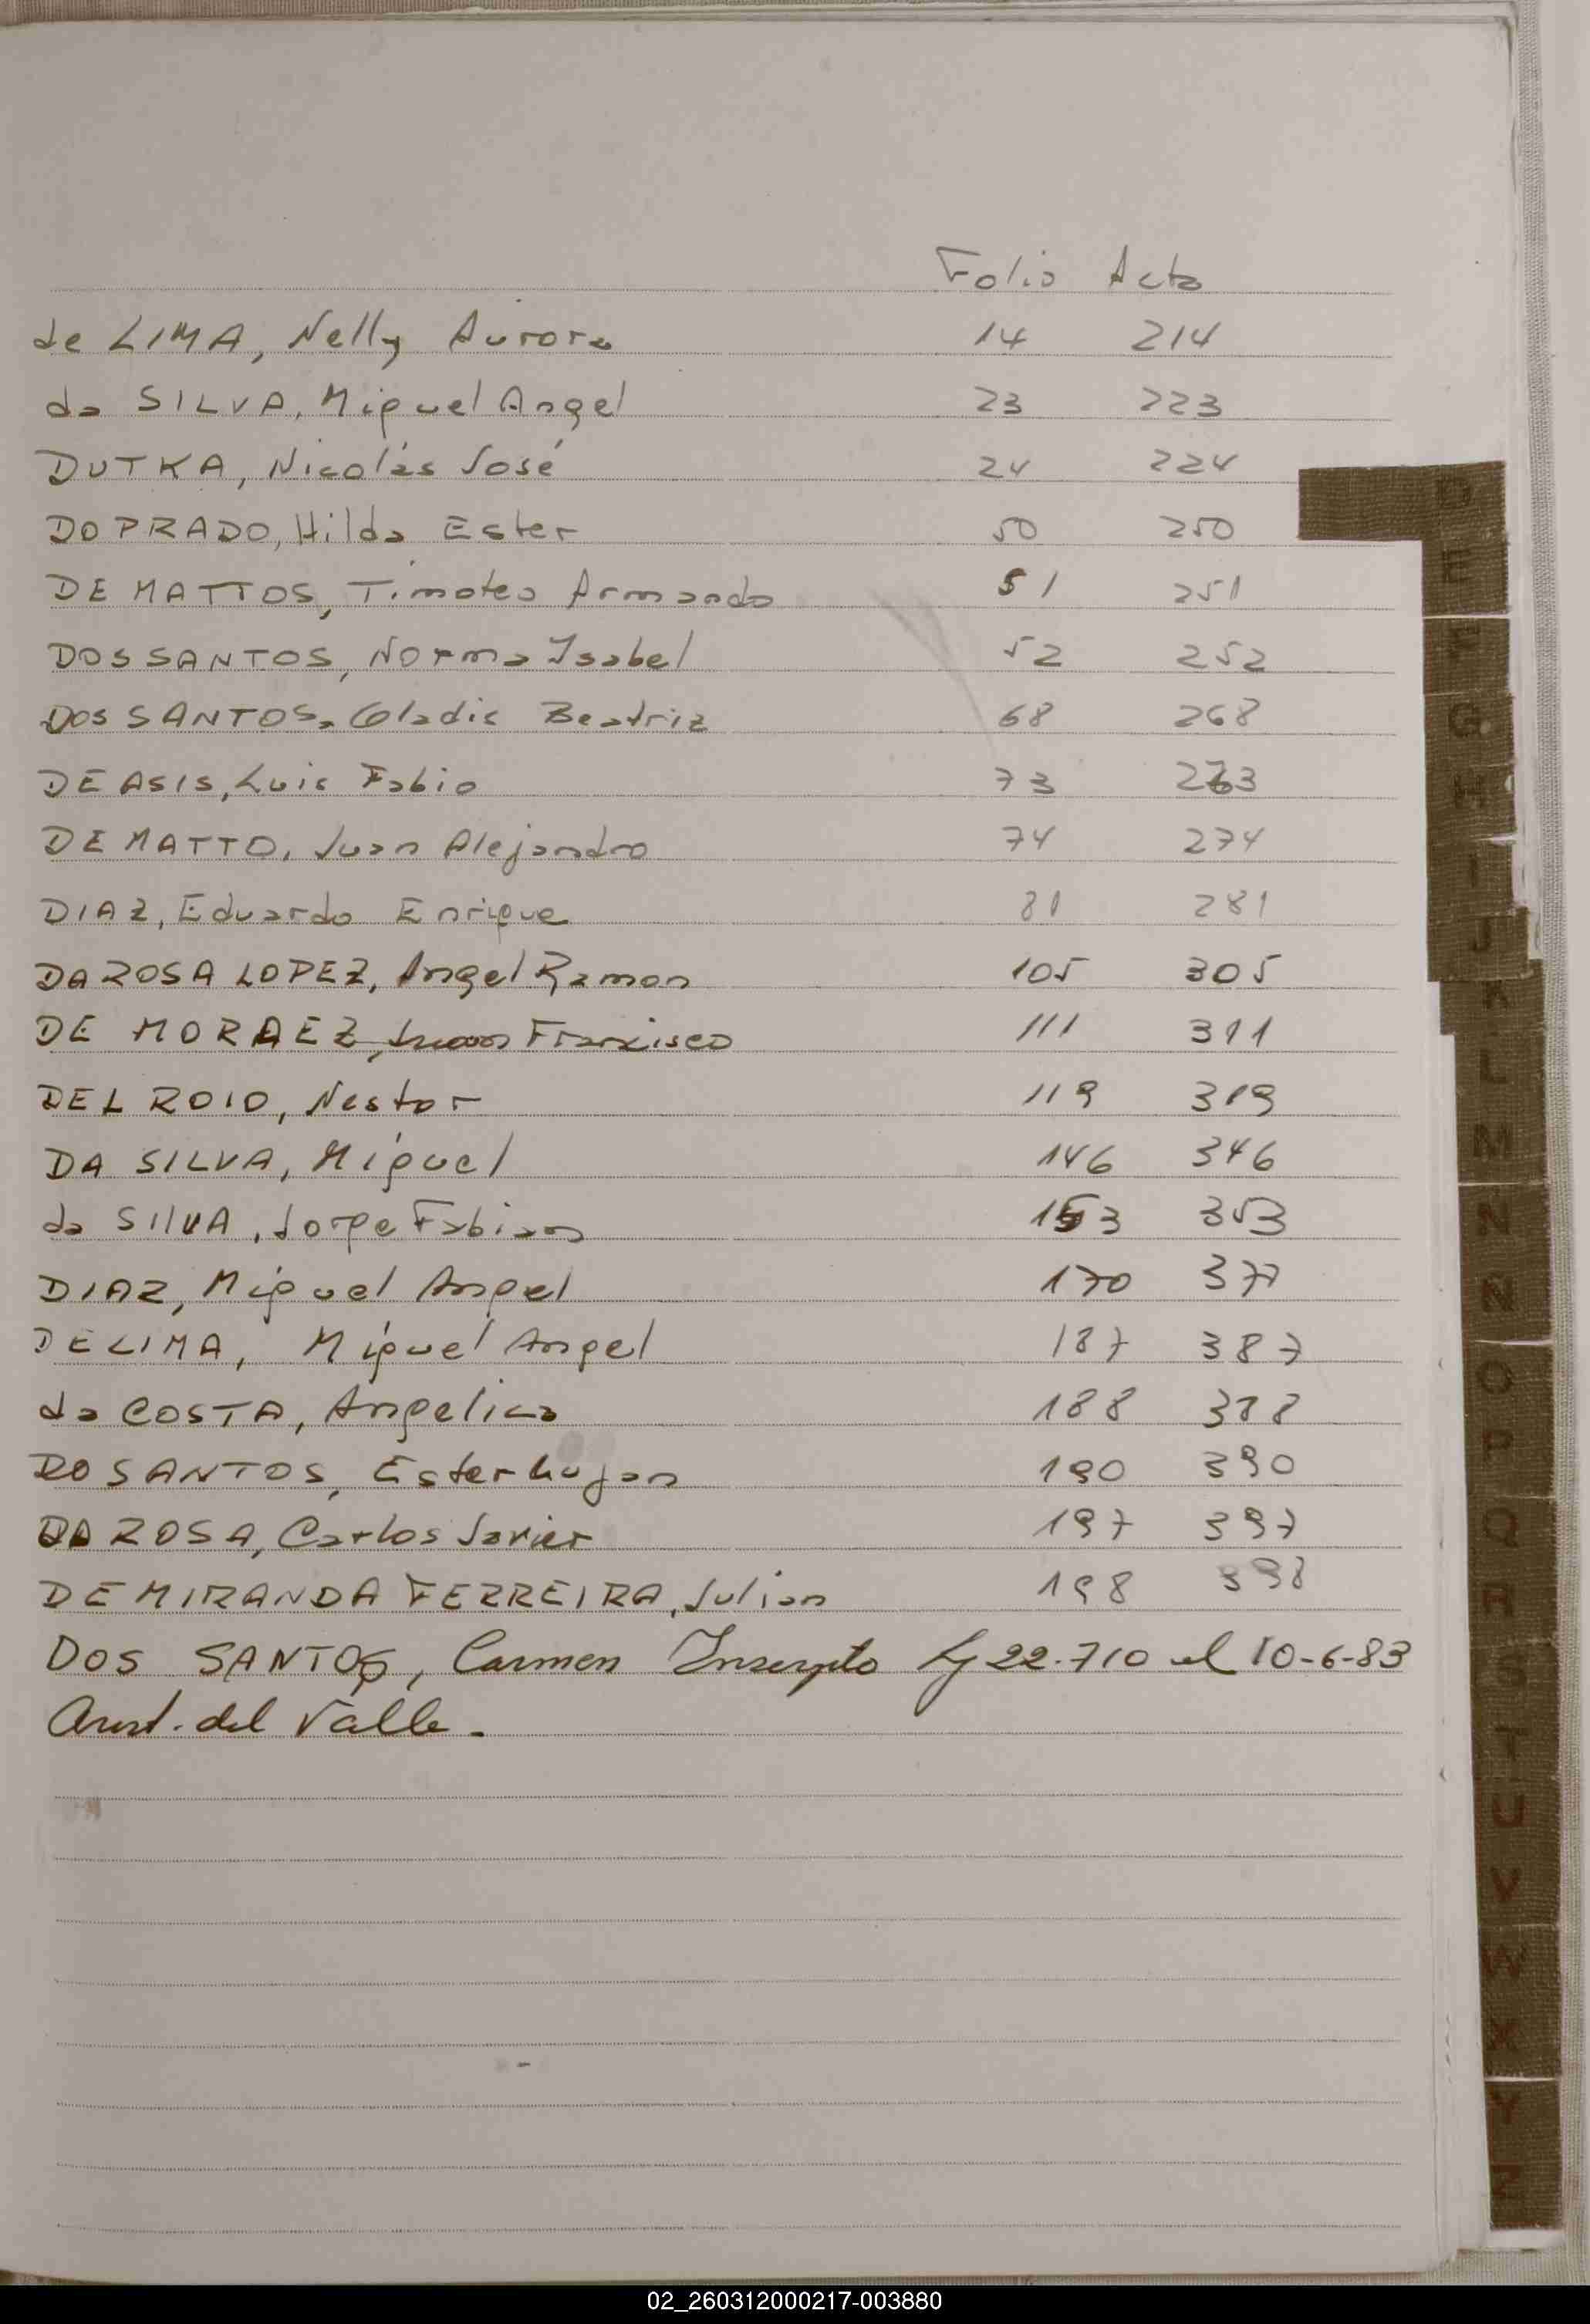 Folio Acta
de LIMA, Nelly Aurora 14 214
da SILVA, Miguel Angel 23 223
DUTKA, Nicolás José 24 224
DO PRADO, Hilda Ester 50 250
DE MATTOS, Timoteo Armando 51 251
DOS SANTOS, Norma Isabel 52 252
DOS SANTOS, Gladis Beatriz 68 268
DE ASIS, Luis Fabio 73 273
DE MATTO, Juan Alejandro 74 274
DIAZ, Eduardo Enrique 81 281
DA ROSA LOPEZ, Angel Ramon 105 305
DE MORAEZ, Juan Francisco 111 311
DEL ROIO, Nestor 119 319
DA SILVA, Miguel 146 346
da SILVA, Jorge Fabian 153 353
DIAZ, Miguel Angel 170 370
DE LIMA, Miguel Angel 187 387
da COSTA, Angelica 188 388
DO SANTOS, Ester 190 390
DA ROSA, Carlos Javier 197 397
DE MIRANDA FERREIRA, Julian 198 398
DOS SANTOS, Carmen Inscripto Ly 22.710 el 10-6-83
Arist. del Valle.
D
E
F
G
H
I
J
K
L
M
N
N
O
P
Q
R
S
T
U
V
W
X
Y
Z
02_260312000217-003880